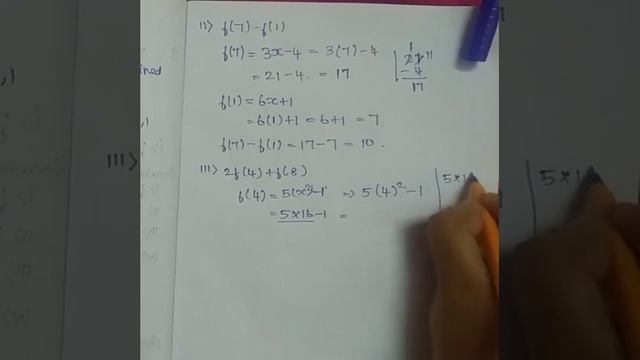 II> f(7) - f(1)
f(7) = 3x-4 = 3(7)-4
= 21-4. = 17
21
- 4
17
f(1) = 6x+1
= 6(1)+1 = 6+1 = 7
f(7)-f(1) = 17-7 = 10.
III> 2f(4)+f(8)
f(4) = 5(x²)-1 ⇒ 5(4)²-1
= 5×16-1 =
5×1